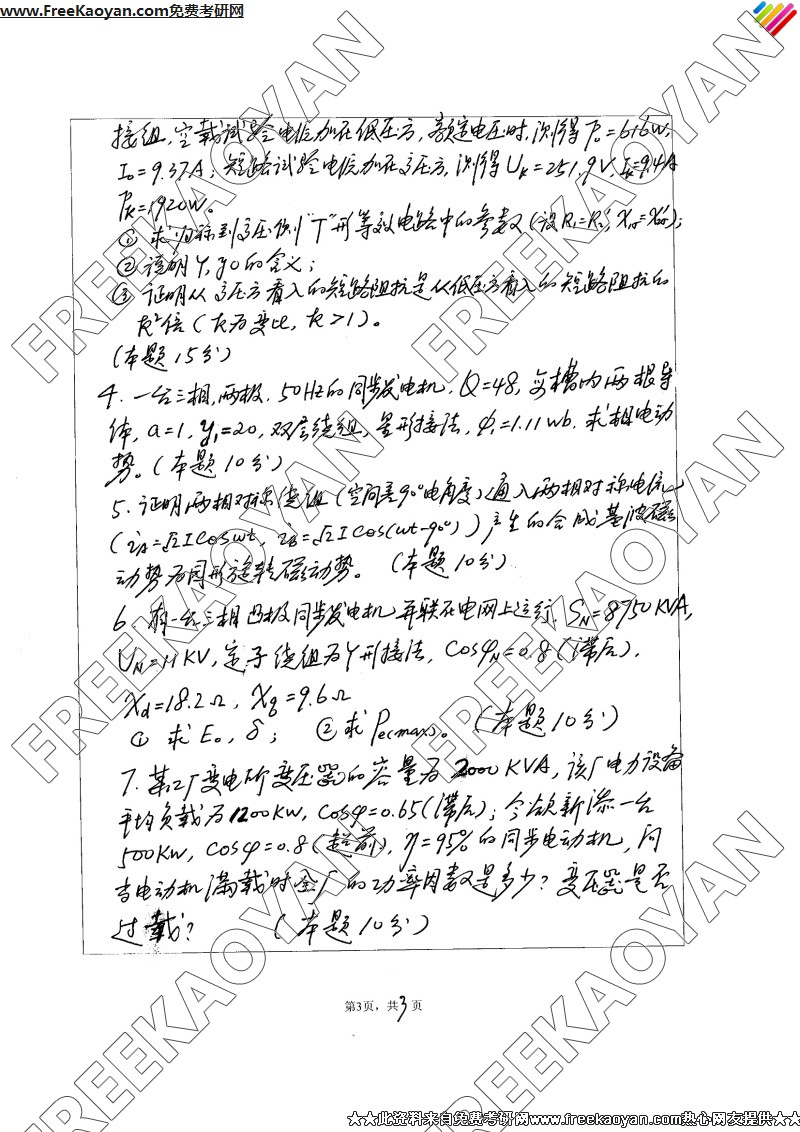 www.FreeKaoyan.com免费考研网
接组，空载试验电压加在低压方，额定电压时，测得P₀=616W，
I₀=9.37A；短路试验电压加在高压方，测得Uk=251.9V，Ik=9.4A
Pk=1920W。
① 求归算到高压侧"T"形等效电路中的参数（设R₁=R₂'，X₁σ=X₂σ'）；
② 说明Y,y0的含义；
③ 证明从高压方看入的短路阻抗是从低压方看入的短路阻抗的
k²倍（k为变比，k>1）。
（本题15分）
4. 一台三相，两极，50HZ的同步发电机，Q=48，每槽内两根导
体，a=1，y₁=20，双层绕组，星形接法，φ₁=1.11wb，求相电动
势。（本题10分）
5. 证明两相对称绕组（空间差90°电角度）通入两相对称电流
（iA=√2Icosωt，iB=√2Icos(ωt-90°)）产生的合成基波磁
动势为圆形旋转磁动势。（本题10分）
6. 有一台三相凸极同步发电机并联在电网上运行，SN=8750KVA，
UN=11KV，定子绕组为Y形接法，cosφN=0.8（滞后），
Xd=18.2Ω，Xq=9.6Ω
① 求E₀，δ； ②求Pe(max)。（本题10分）
7. 某工厂变电所变压器的容量为2000KVA，该厂电力设备
平均负载为1200KW，cosφ=0.65（滞后）；今欲新添一台
500KW，cosφ=0.8（超前），η=95%的同步电动机，问
当电动机满载时全厂的功率因数是多少？变压器是否
过载？（本题10分）
第3页，共3页
★★此资料来自免费考研网www.freekaoyan.com热心网友提供★★
FREEKAOYAN
FREEKAOYAN
FREEKAOYAN
FREEKAOYAN
FREEKAOYAN
FREEKAOYAN